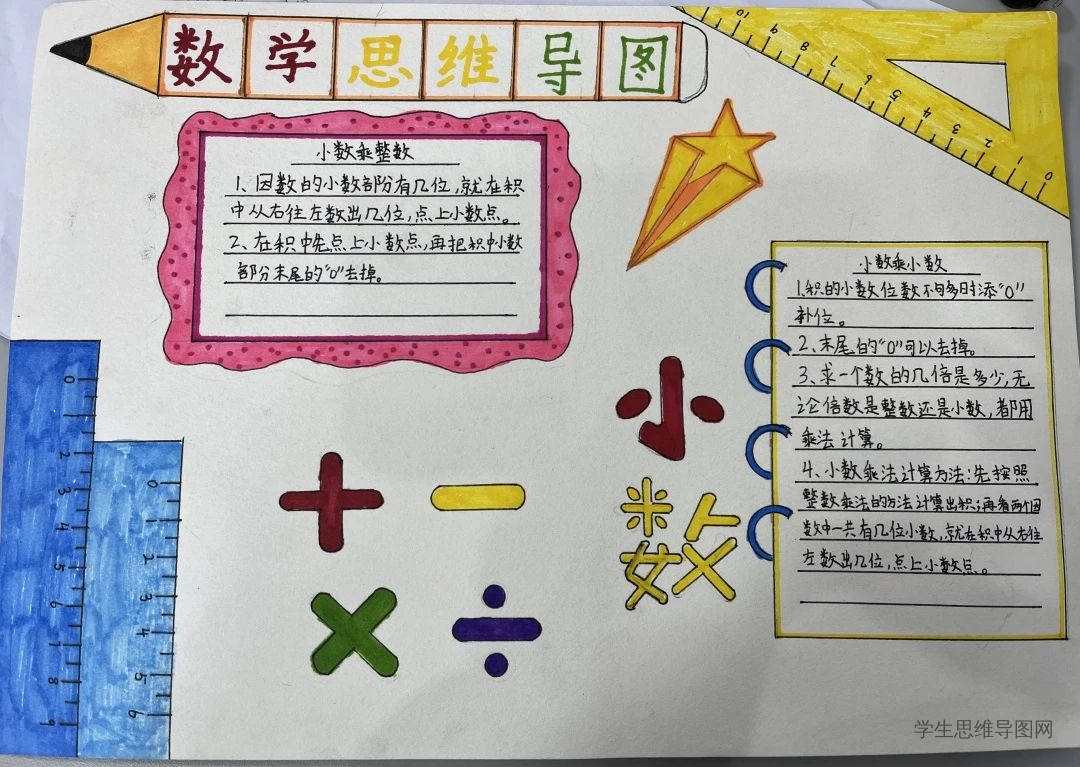 数学思维导图
小数乘整数
1、因数的小数部分有几位,就在积
中从右往左数出几位,点上小数点。
2、在积中先点上小数点,再把积中小数
部分末尾的"0"去掉。
小数乘小数
1.积的小数位数不够多时添"0"
补位。
2、末尾的"0"可以去掉。
3、求一个数的几倍是多少,无
论倍数是整数还是小数,都用
乘法计算。
4、小数乘法计算方法:先按照
整数乘法的方法计算出积;再看两个因
数中一共有几位小数,就在积中从右往
左数出几位,点上小数点。
小
数
+ −
× ÷
10 9 8 7 6 5 4 3 2 1 0
0 1 2 3 4 5 6 7 8 9
0 1 2 3 4 5 6
学生思维导图网